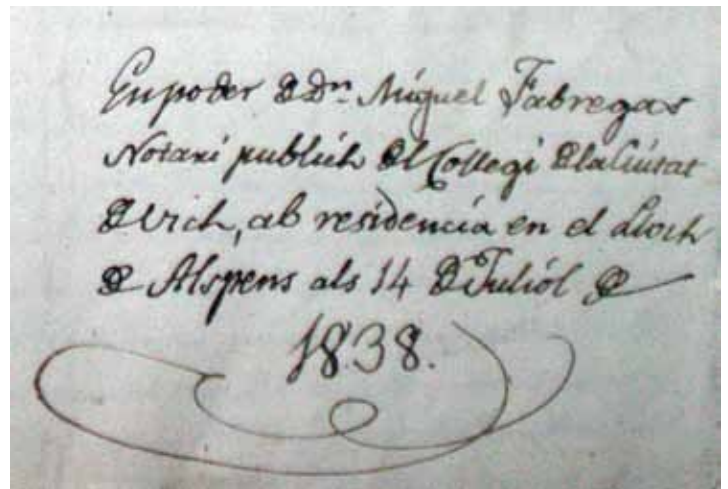 En poder de Dn. Miguel Fabregas
Notari publich del Collegi de la Ciutat
de Vich, ab residencia en el Lloch
de Alspens als 14 de Juliól de
1838.